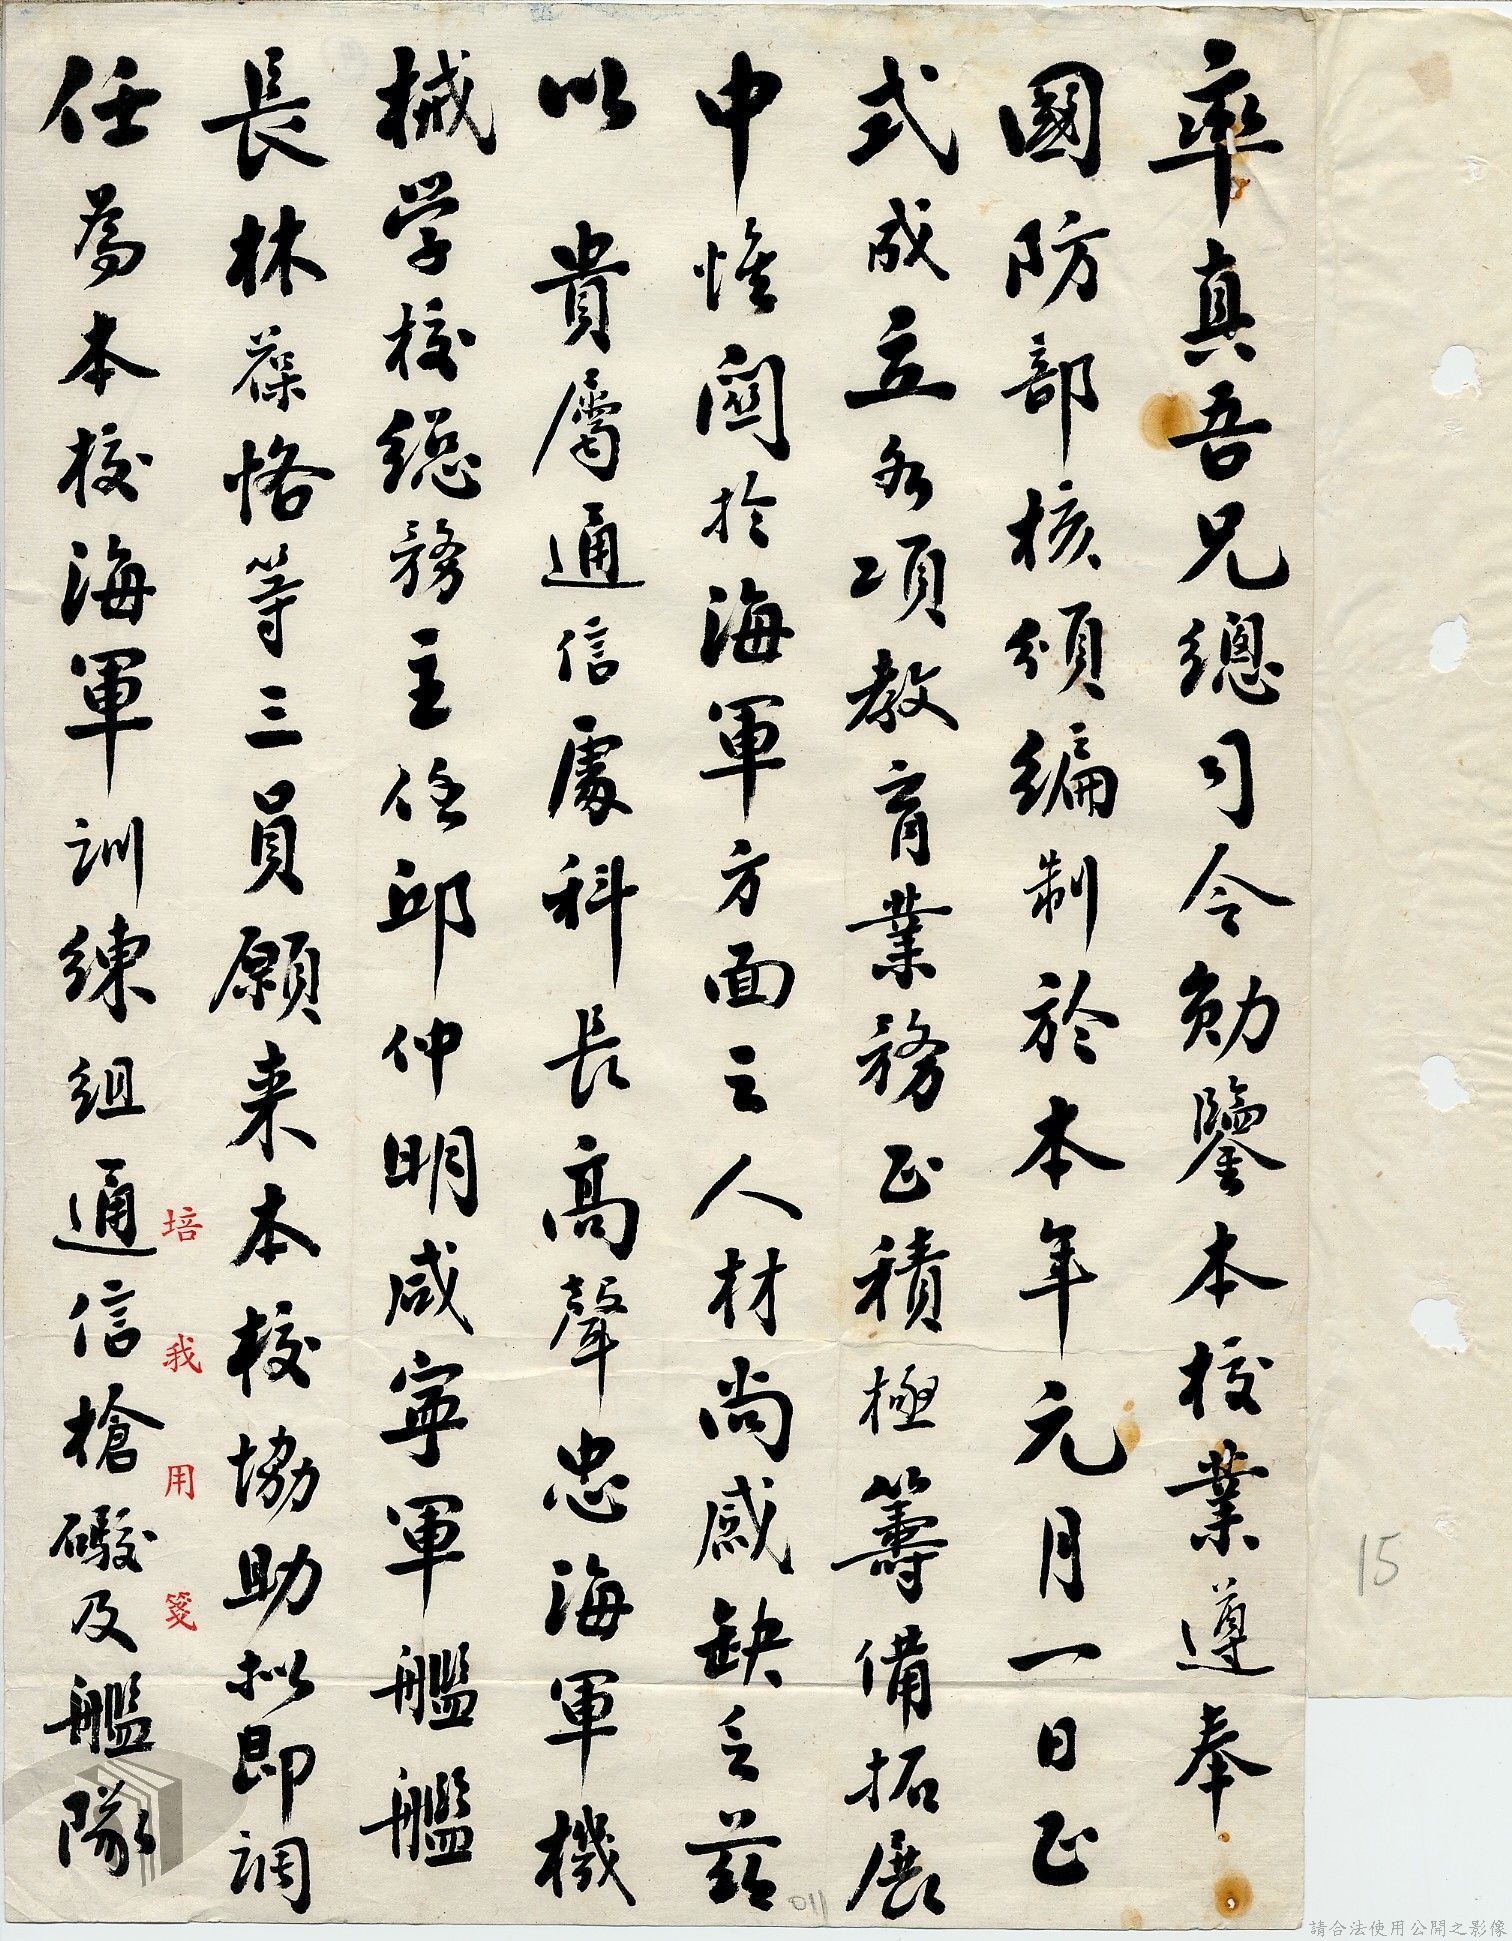 率真吾兄總司令勛鑒本校業遵奉
國防部核頒編制於本年元月一日正
式成立各項教育業務正積極籌備拓展
中惟関於海軍方面之人材尚感缺乏茲
以　貴屬通信處科長高聲忠海軍機
械学校総務主任邱仲明咸寧軍艦艦
長林葆恪等三員願来本校協助拟即調
任為本校海軍訓練組通信槍礮及艦隊
培我用箋
15
110
請合法使用公開之影像